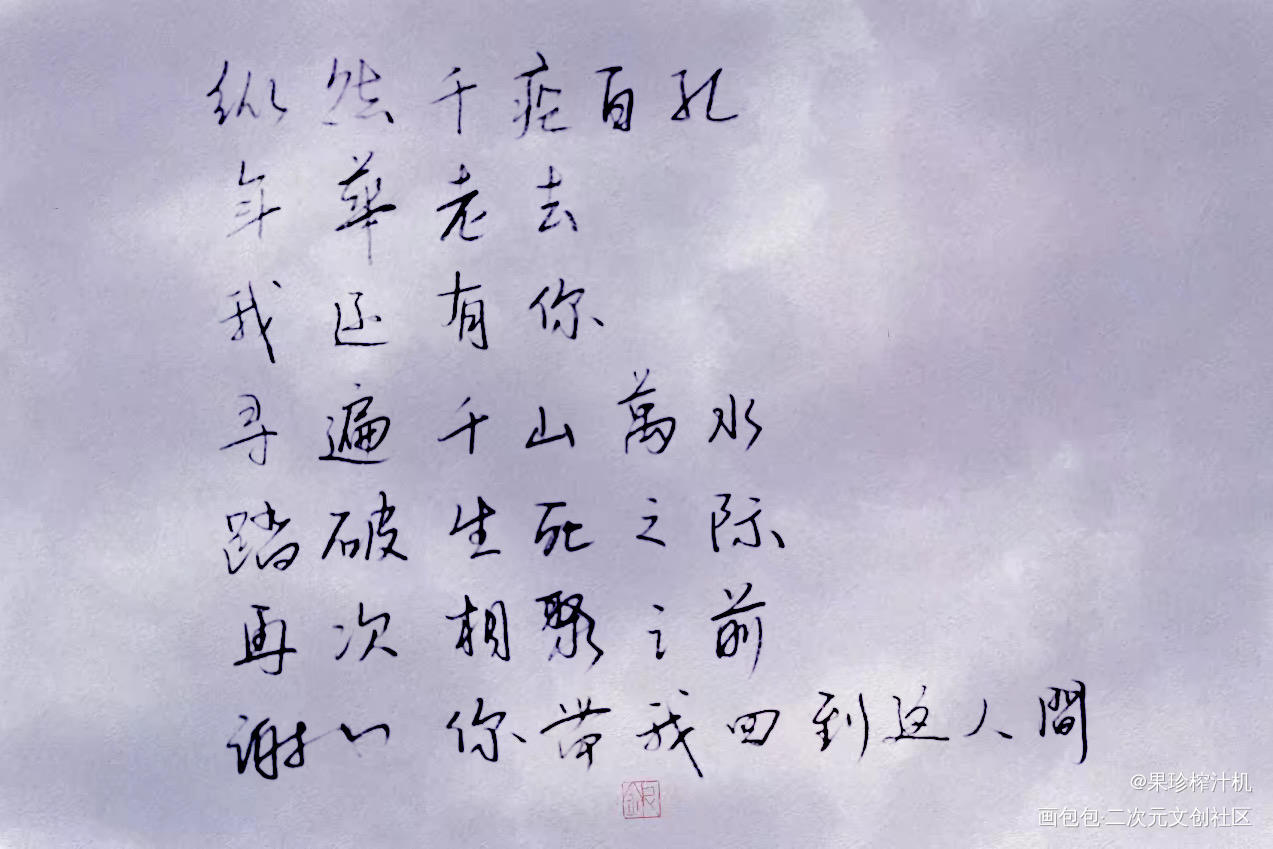 纵然千疮百孔
年华老去
我还有你
寻遍千山萬水
踏破生死之际
再次相聚之前
谢以你带我回到这人間
銀
@果珍榨汁机
画包包·二次元文创社区